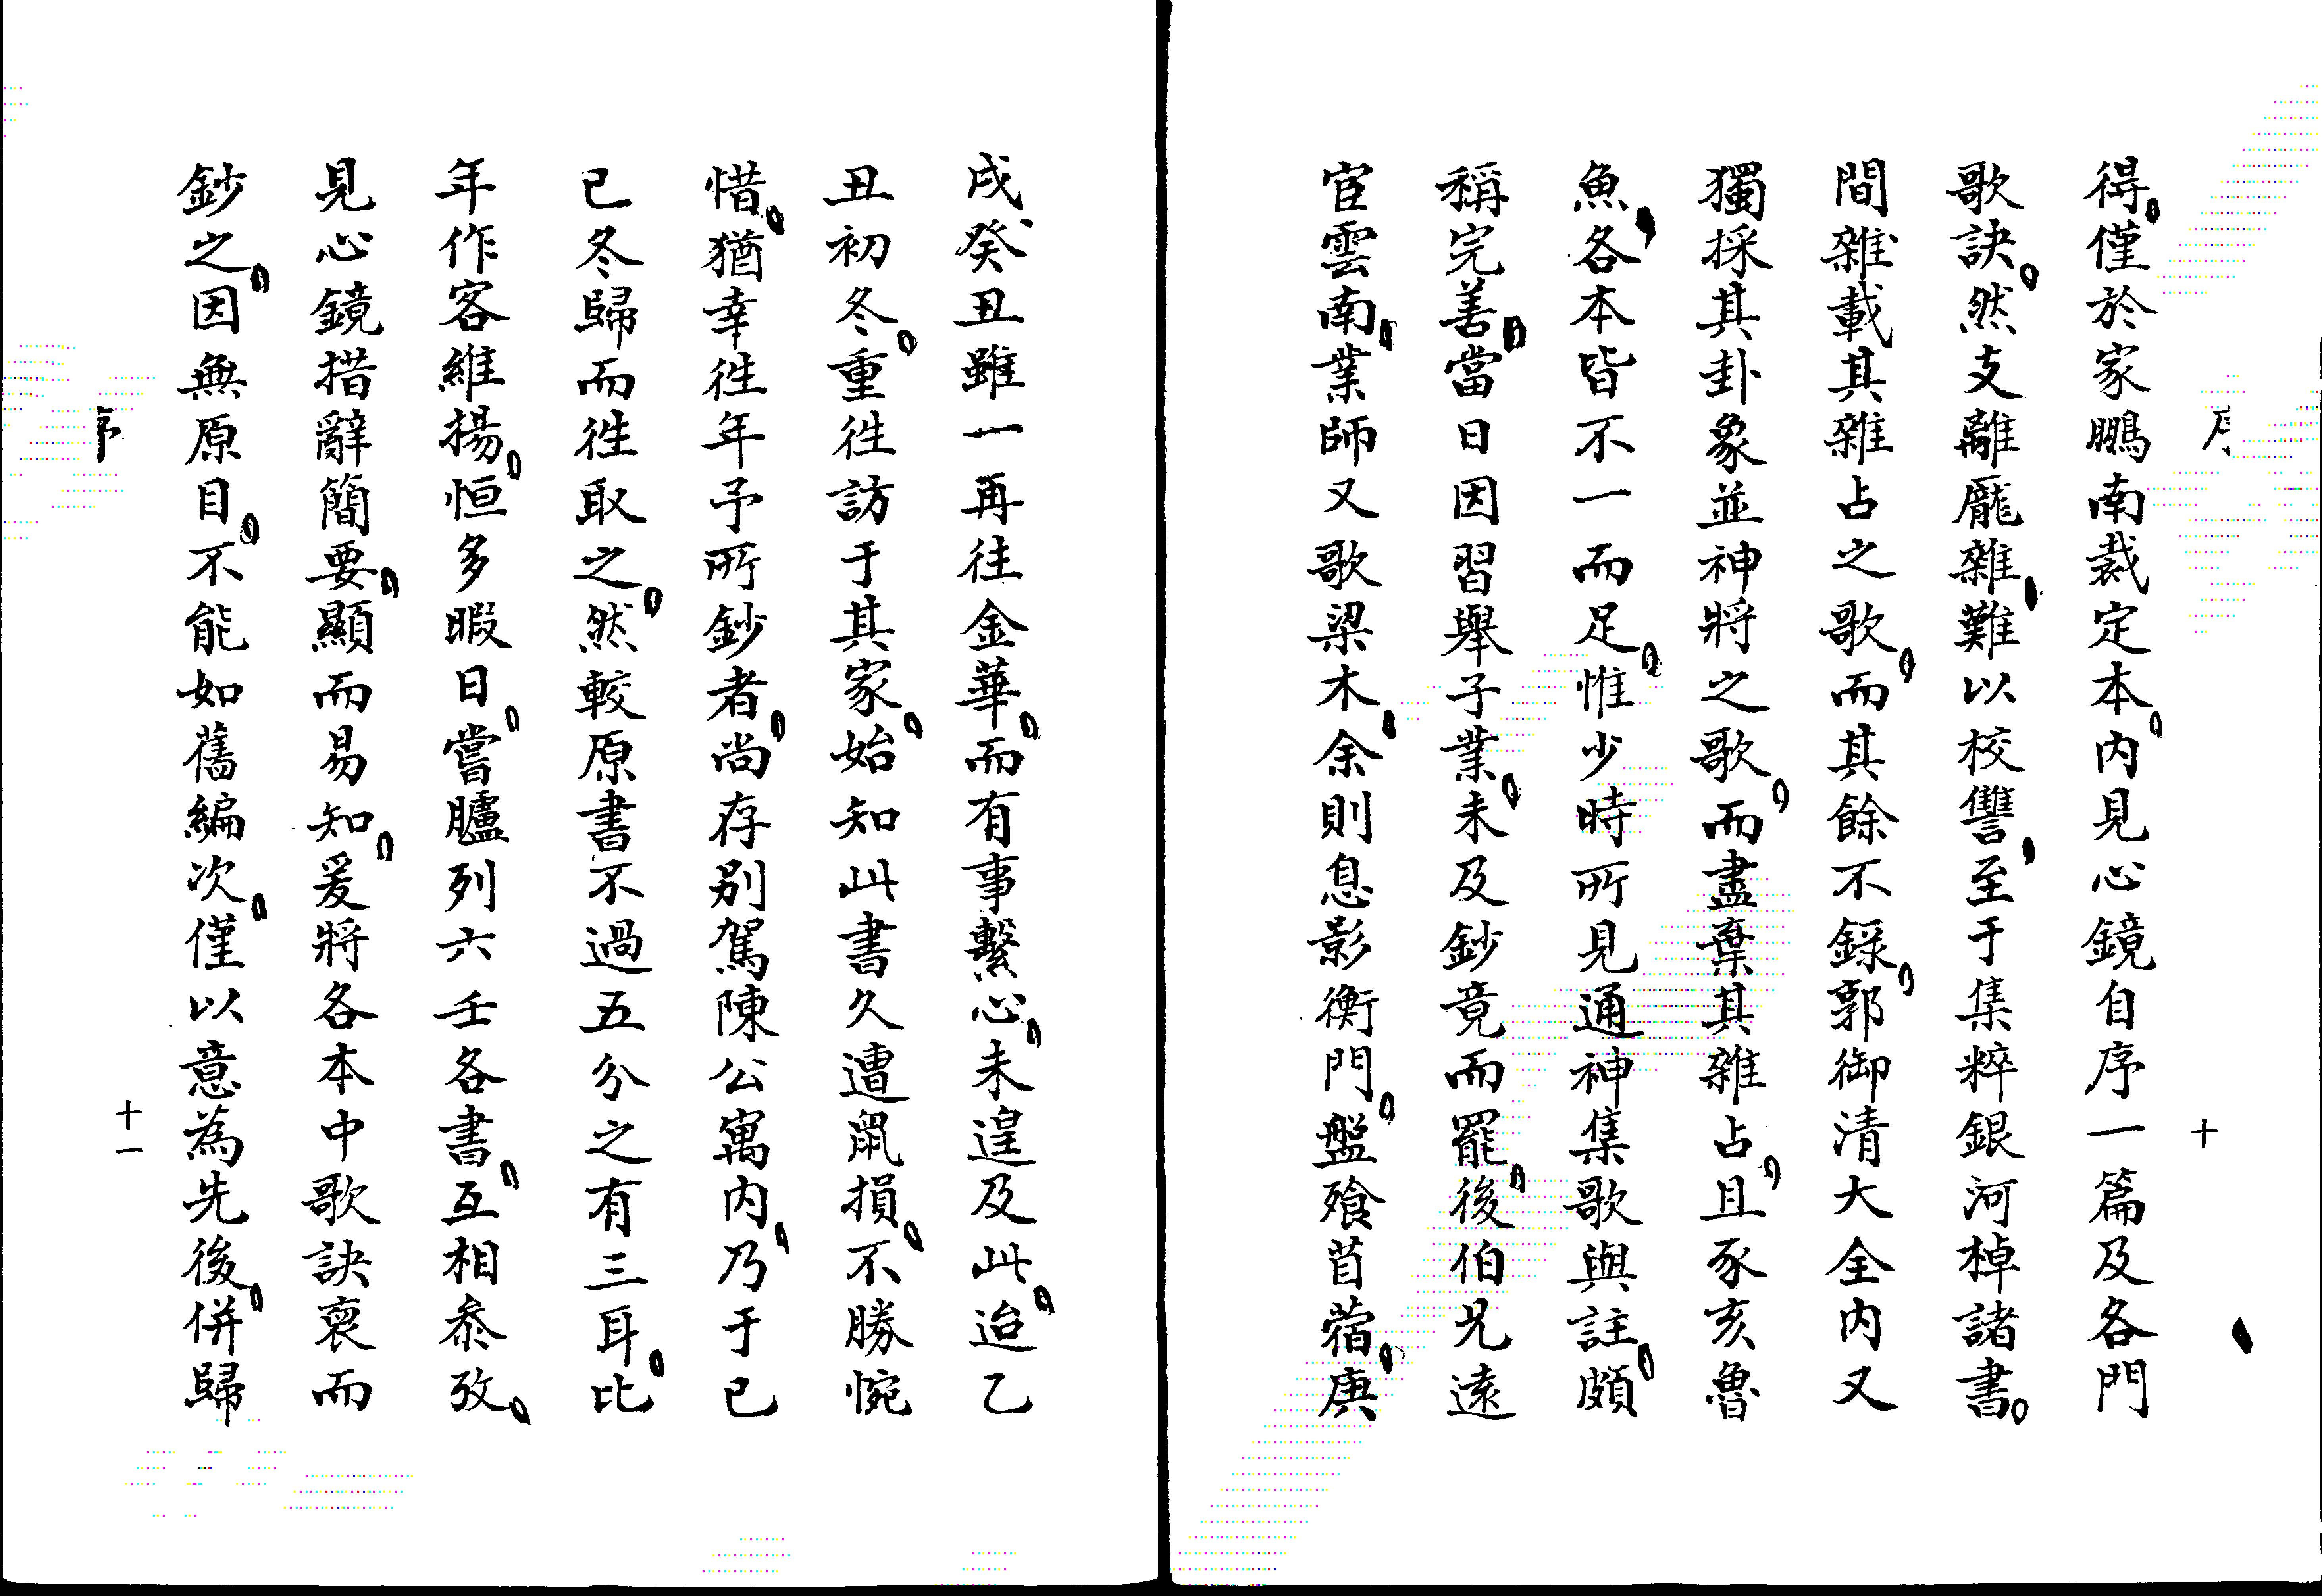 序
十
得僅於家鵬南裁定本內見心鏡自序一篇及各門
歌訣然支離龐雜難以校讐至于集粹銀河棹諸書
間雜載其雜占之歌而其餘不錄郭御清大全內又
獨採其卦象並神將之歌而盡棄其雜占且豕亥魯
魚各本皆不一而足惟少時所見通神集歌與註頗
稱完善當日因習舉子業未及鈔竟而罷後伯兄遠
宦雲南業師又歌梁木余則息影衡門盤飱苜蓿庚
戌癸丑雖一再往金華而有事繫心未遑及此迨乙
丑初冬重徃訪于其家始知此書久遭鼠損不勝惋
惜猶幸徃年予所鈔者尚存別駕陳公寓內乃于已
已冬歸而徃取之然較原書不過五分之有三耳比
年作客維揚恒多暇日嘗臚列六壬各書互相叅攷
見心鏡措辭簡要顯而易知爰將各本中歌訣裒而
鈔之因無原目不能如舊編次僅以意為先後併歸
序
十一